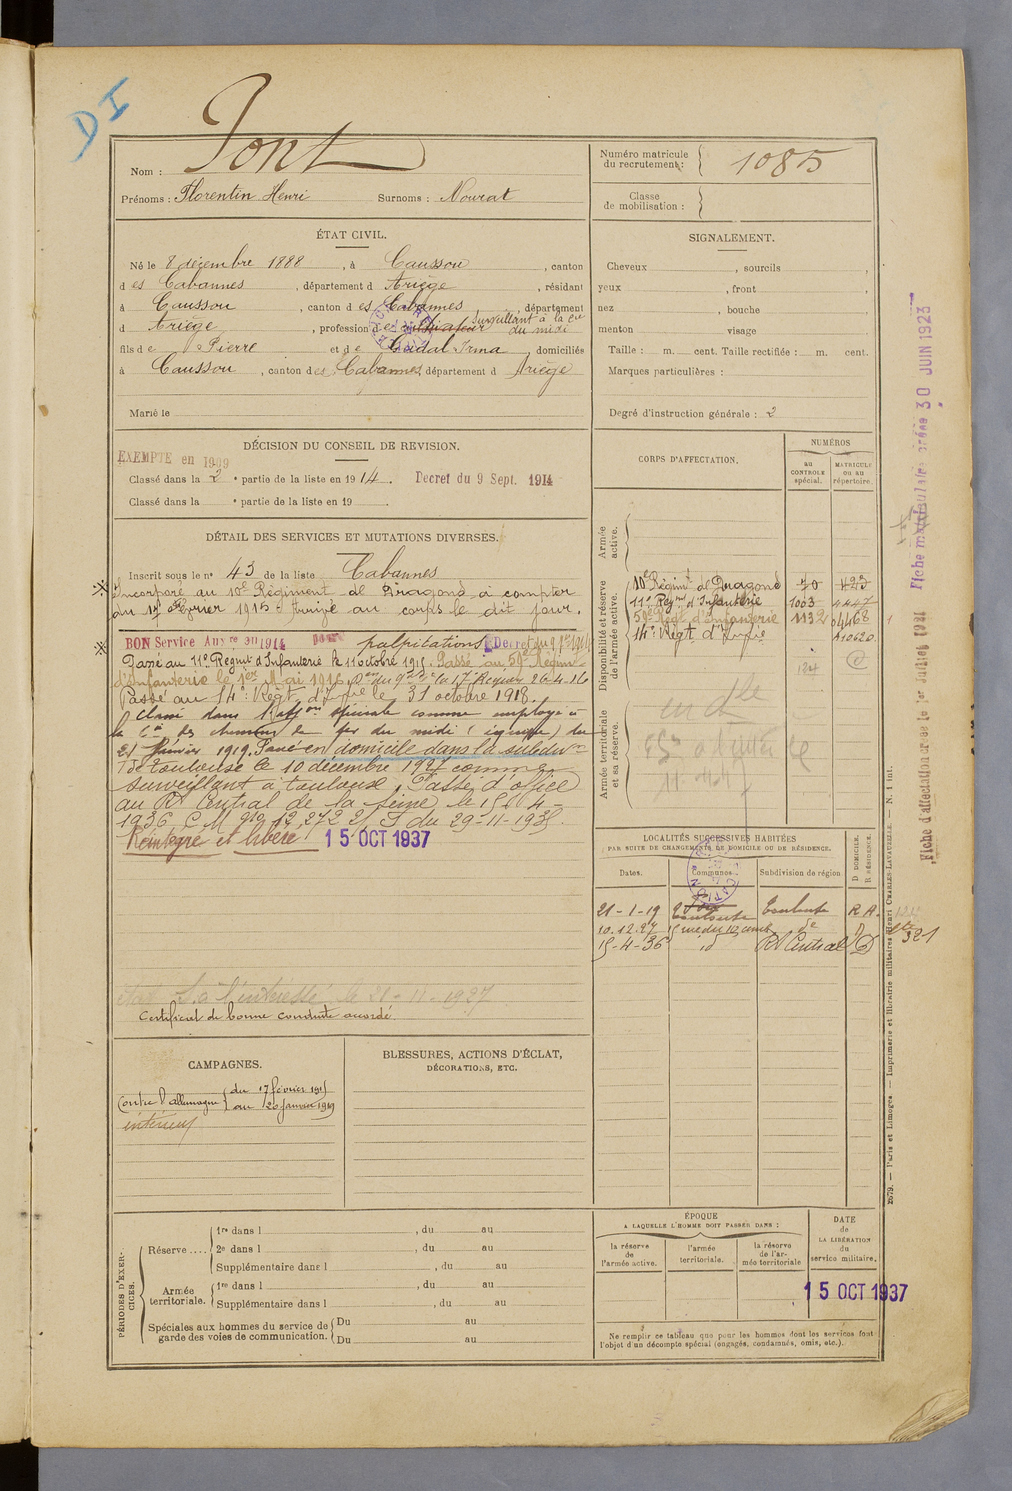 DI
Nom : Pont
Prénoms : Florentin Henri Surnoms : Nourat
Numéro matricule du recrutement : 1085
Classe de mobilisation :
ÉTAT CIVIL.
Né le 8 décembre 1888, à Caussou, canton
d es Cabannes, département d Ariège, résidant
à Caussou, canton d es Cabannes, département
d Ariège, profession d cultivateur Surveillant à la Cie du midi
fils de Pierre et de Cadal Irma, domiciliés
à Caussou, canton des Cabannes, département d Ariège
Marié le
SIGNALEMENT.
Cheveux , sourcils ,
yeux , front ,
nez , bouche
menton visage
Taille : m. cent. Taille rectifiée : m. cent.
Marques particulières :
Degré d'instruction générale : 2
DÉCISION DU CONSEIL DE REVISION.
EXEMPTÉ en 1909
Classé dans la 2 e partie de la liste en 1914. Decret du 9 Sept. 1914
Classé dans la e partie de la liste en 19 .
DÉTAIL DES SERVICES ET MUTATIONS DIVERSES.
Inscrit sous le no 43 de la liste Cabannes
Incorporé au 10e Régiment de Dragons à compter
du 17 février 1915 Arrivé au corps le dit jour.
BON Service Armé en 1914 pour palpitations Decret du 9 7bre 1914
Passé au 11e Régimt d'Infanterie le 11 octobre 1915. Passé au 59e Régimt
d'Infanterie le 1er Mai 1916,
Passé au 14e Régt d'Infie le 31 octobre 1918.
Classé dans l'affon spéciale comme employé à
la Cie des chemins de fer du midi ( ) du
21 Janvier 1919. Passé en domicile dans la subdivon
de Toulouse le 10 décembre 1927 comme
surveillant à Toulouse. Passé d'office
au Rt Central de la Seine le 15-4-
1936 C M no 12.272 2/S du 29-11-1935.
Réintégré et libéré 15 OCT 1937
à l'intéressé le 21-11-1927
Certificat de bonne conduite accordé.
CORPS D'AFFECTATION.
NUMÉROS
au CONTROLE spécial.
MATRICULE ou au répertoire.
Armée active.
Disponibilité et réserve de l'armée active.
10e Régimt de Dragons 70 423
11e Regmt d'Infanterie 1003 4447
59e Régt d'Infanterie 1132 04468
14e Régt d'Infie A10620
124
Armée territoriale et sa réserve.
LOCALITÉS SUCCESSIVES HABITÉES
PAR SUITE DE CHANGEMENTS DE DOMICILE OU DE RÉSIDENCE.
Dates. Communes. Subdivision de région. D DOMICILE. R RÉSIDENCE.
21-1-19 Toulouse Toulouse R A.
10.12.27 de D
15-4-36 id Rt Central D
321
CAMPAGNES.
Contre l'allemagne du 17 février 1915
au 20 Janvier 1919
intérieur
BLESSURES, ACTIONS D'ÉCLAT,
DÉCORATIONS, ETC.
PÉRIODES D'EXERCICES.
Réserve .... 1re dans l , du au
2e dans l , du au
Supplémentaire dans l , du au
Armée territoriale. 1re dans l , du au
Supplémentaire dans l , du au
Spéciales aux hommes du service de garde des voies de communication. Du au
Du au
ÉPOQUE
A LAQUELLE L'HOMME DOIT PASSER DANS :
la réserve de l'armée active.
l'armée territoriale.
la réserve de l'armée territoriale
DATE de LA LIBÉRATION du service militaire.
15 OCT 1937
Ne remplir ce tableau que pour les hommes dont les services font
l'objet d'un décompte spécial (engagés, condamnés, omis, etc.).
Fiche matriculaire créée 30 JUIN 1923
Fiche d'affectation créée le 1er Juillet 1924
2679. — Paris et Limoges — Imprimerie et librairie militaires Henri CHARLES-LAVAUZELLE. — N. 1 int.